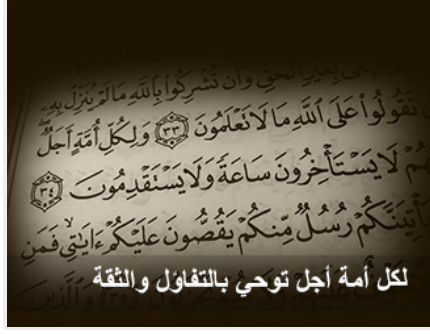 بِغَيْرِ الْحَقِّ وَأَن تُشْرِكُوا بِاللَّهِ مَا لَمْ يُنَزِّلْ بِهِ
تَقُولُوا عَلَى اللَّهِ مَا لَا تَعْلَمُونَ ٣٣ وَلِكُلِّ أُمَّةٍ أَجَلٌ
هُمْ لَا يَسْتَأْخِرُونَ سَاعَةً وَلَا يَسْتَقْدِمُونَ ٣٤
يَأْتِيَنَّكُمْ رُسُلٌ مِّنكُمْ يَقُصُّونَ عَلَيْكُمْ ءَايَاتِي فَمَنِ
لكل أمة أجل توحي بالتفاؤل والثقة